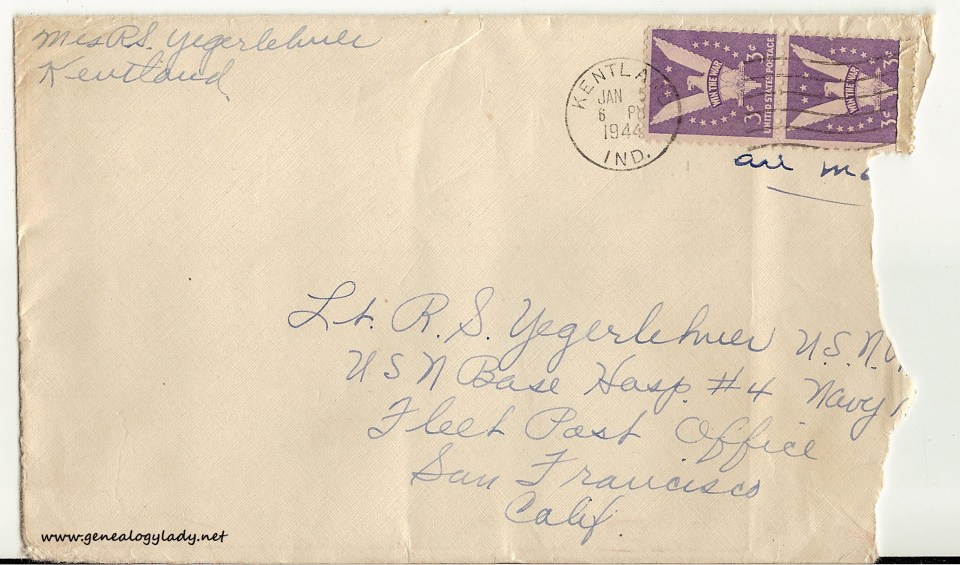 Mrs R.S. Yegerlehner
Kentland,
KENTLA
JAN 5
6 PM
1944
IND.
WIN THE WAR
3¢
3¢
UNITED STATES POSTAGE
WIN THE WAR
3¢
3¢
air
Lt. R. S. Yegerlehner U.S.N.
U S N Base Hosp. #4 Navy
Fleet Post Office
San Francisco
Calif.
www.genealogylady.net